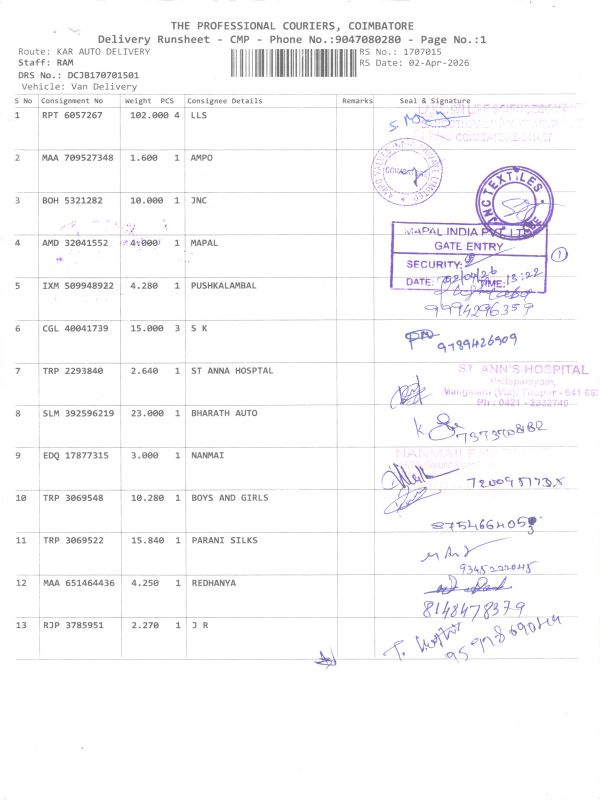 THE PROFESSIONAL COURIERS, COIMBATORE
Delivery Runsheet - CMP - Phone No.:9047080280 - Page No.:1
Route: KAR AUTO DELIVERY
RS No.: 1707015
Staff: RAM
RS Date: 02-Apr-2026
DRS No.: DCJB170701501
Vehicle: Van Delivery
S No Consignment No Weight PCS Consignee Details Remarks Seal & Signature
1 RPT 6057267 102.000 4 LLS
2 MAA 709527348 1.600 1 AMPO
COIMBATORE
3 BOH 5321282 10.000 1 JNC
JNC TEXTILES
4 AMD 32041552 4.000 1 MAPAL
MAPAL INDIA PVT LTD
GATE ENTRY
SECURITY:
DATE: 02/04/26 TIME: 13:22
1
5 IXM 509948922 4.280 1 PUSHKALAMBAL
9994296359
6 CGL 40041739 15.000 3 S K
9789426909
7 TRP 2293840 2.640 1 ST ANNA HOSPTAL
ST ANN'S HOSPITAL
Mangalam (Via), Tirupur - 641 663
Ph : 0421 - 2332746
8 SLM 392596219 23.000 1 BHARATH AUTO
9 EDQ 17877315 3.000 1 NANMAI
NANMAI
10 TRP 3069548 10.280 1 BOYS AND GIRLS
8754664053
11 TRP 3069522 15.840 1 PARANI SILKS
9345222045
12 MAA 651464436 4.250 1 REDHANYA
8148478379
13 RJP 3785951 2.270 1 J R